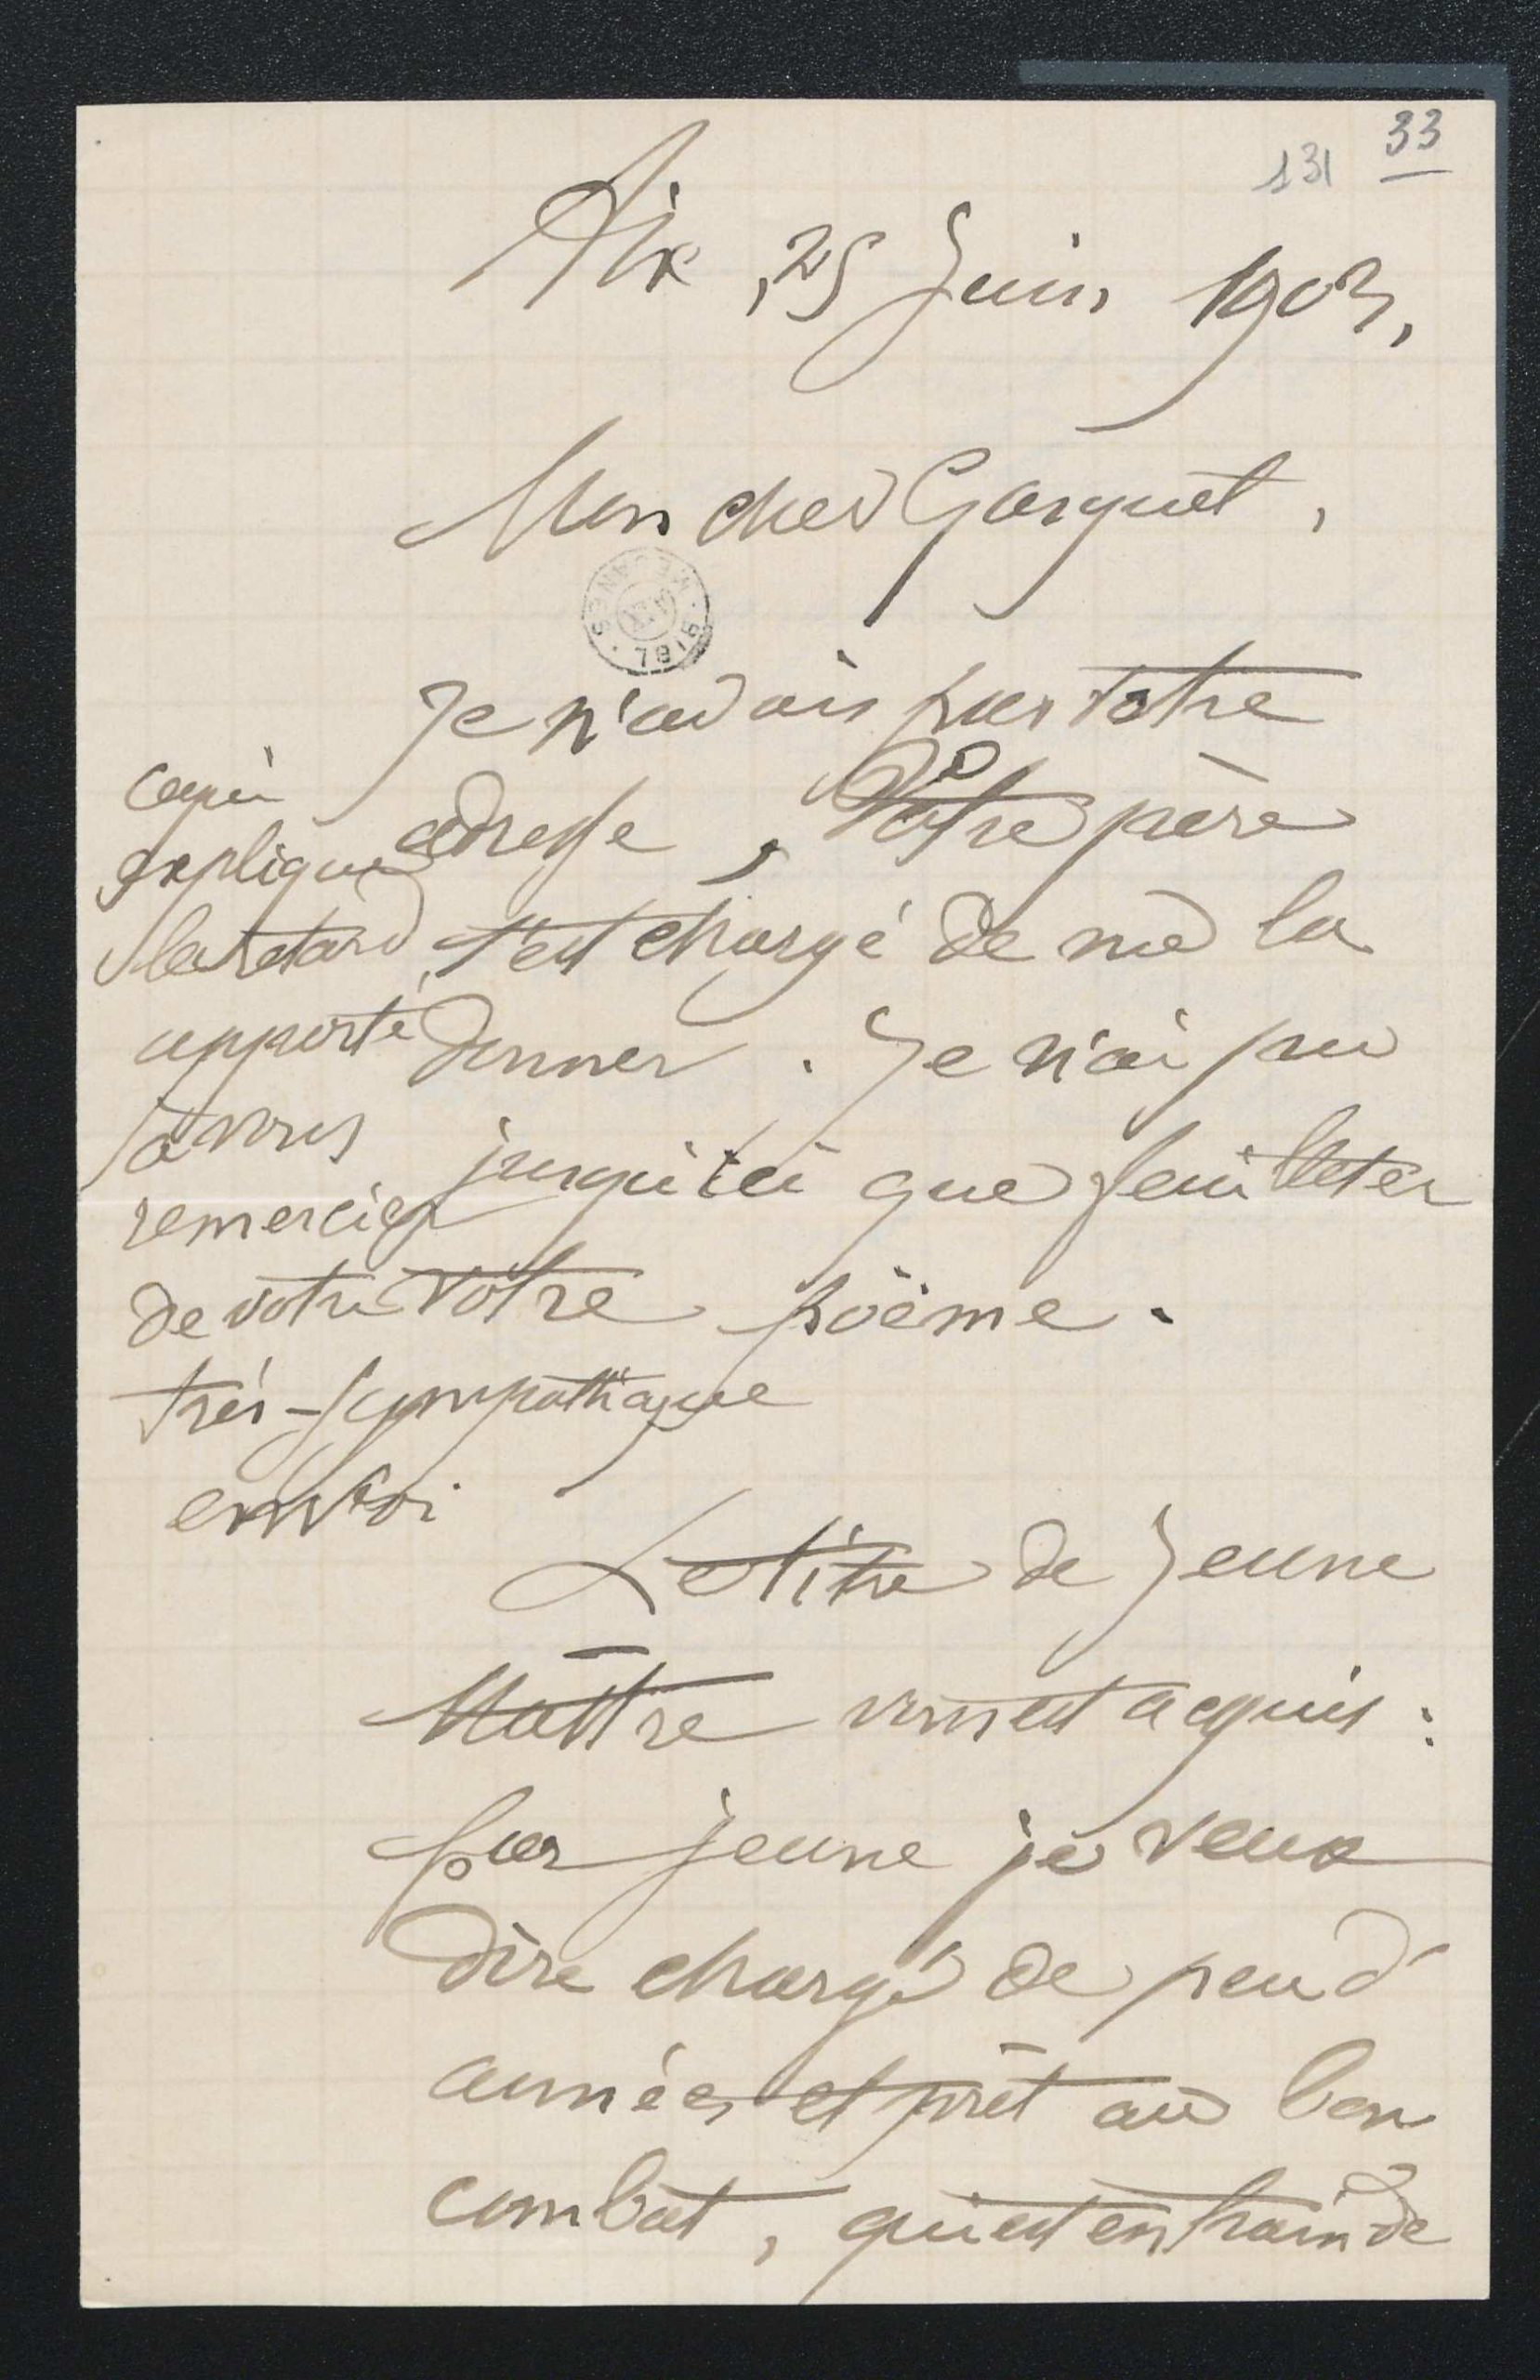 131 33
Aix, 25 Juin 1903,
Mon cher Gasquet,
BIBL. MEJANES AIX
Je n'avais pas votre
adresse, Votre père
s'est chargé de me la
donner. Je n'ai pu
jusqu'ici que feuilleter
votre poème.
ce qui
explique
le retard
apporté
à vous
remercier
de votre
très-sympathique
envoi
Le titre de Jeune
Maître vous est acquis :
par jeune je veux
dire chargé de peu d'
années et prêt au bon
combat, qui est en train de